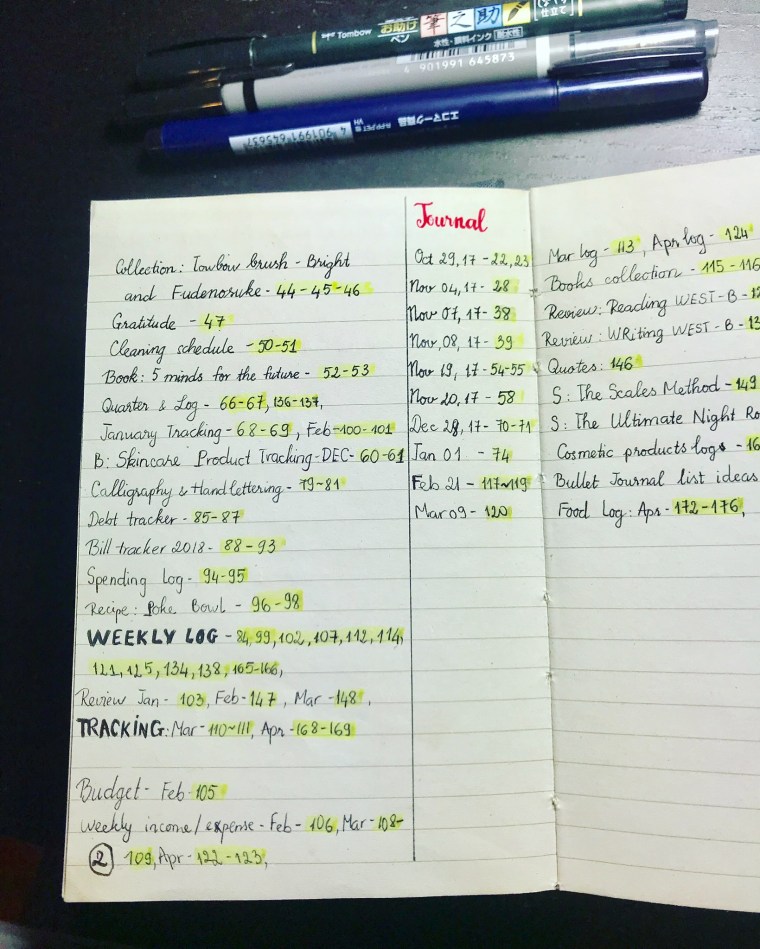 Tombow お助けペン 筆之助
水性・顔料インク 耐水性
4 901991 645873
エコマーク商品
4 901991 645637
Collection: Towbow brush - Bright
and Fudenosuke - 44-45-46
Gratitude - 47
Cleaning schedule - 50-51
Book: 5 minds for the future - 52-53
Quarter & Log - 66-67, 136-137,
January Tracking - 68-69, Feb-100-101
B: Skincare Product Tracking-DEC- 60-61
Calligraphy & Handlettering - 79-81
Debt tracker - 85-87
Bill tracker 2018 - 88-93
Spending Log - 94-95
Recipe: Poke Bowl - 96-98
WEEKLY LOG - 84, 99, 102, 107, 112, 114,
121, 125, 134, 138, 165-166,
Review Jan - 103, Feb-147, Mar-148,
TRACKING: Mar-110~111, Apr-168-169
Budget - Feb-105
Weekly income/expense - Feb- 106, Mar-108-
2 109, Apr-122-123,
Journal
Oct 29, 17 - 22, 23
Nov 04, 17 - 28
Nov 07, 17 - 38
Nov, 08, 17 - 39
Nov 19, 17 - 54-55
Nov 20, 17 - 58
Dec 28, 17 - 70-71
Jan 01 - 74
Feb 21 - 117~119
Mar 09 - 120
Mar log - 113, Apr log - 124
Books collection - 115-116
Review: Reading WEST-B - 12
Review: WRiting WEST-B - 13
Quotes: 146
S: The Scales Method - 149
S: The Ultimate Night Ro
Cosmetic products logs - 16
Bullet Journal list ideas
Food Log: Apr - 172-176,